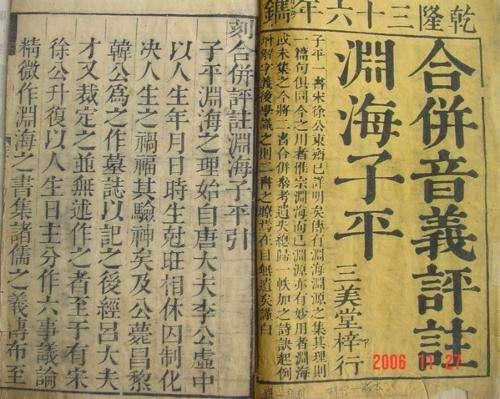 乾隆三十六年鐫
合併音義評註
淵海子平
子平一書宋徐公東齋已詳明矣傳有淵海淵源之集其理則
一篇句俱同今之用者惟宗淵海而已淵源亦有妙用者淵海
或未集之今將二書合併參考遺失總歸一帙加之詩訣起例
三美堂梓行
2006 11 27
刻合併評註淵海子平引
子平淵海之理始自唐大夫李公虛中
以人生年月日時生尅旺相休囚制化
決人生之禍福其驗神矣及公薨昌黎
韓公為之作墓誌以記之後經呂大夫
才又裁定之並無述作之者至于有宋
徐公升復以人生日主分作六事議論
精微作淵海之書集諸儒之義傳布至